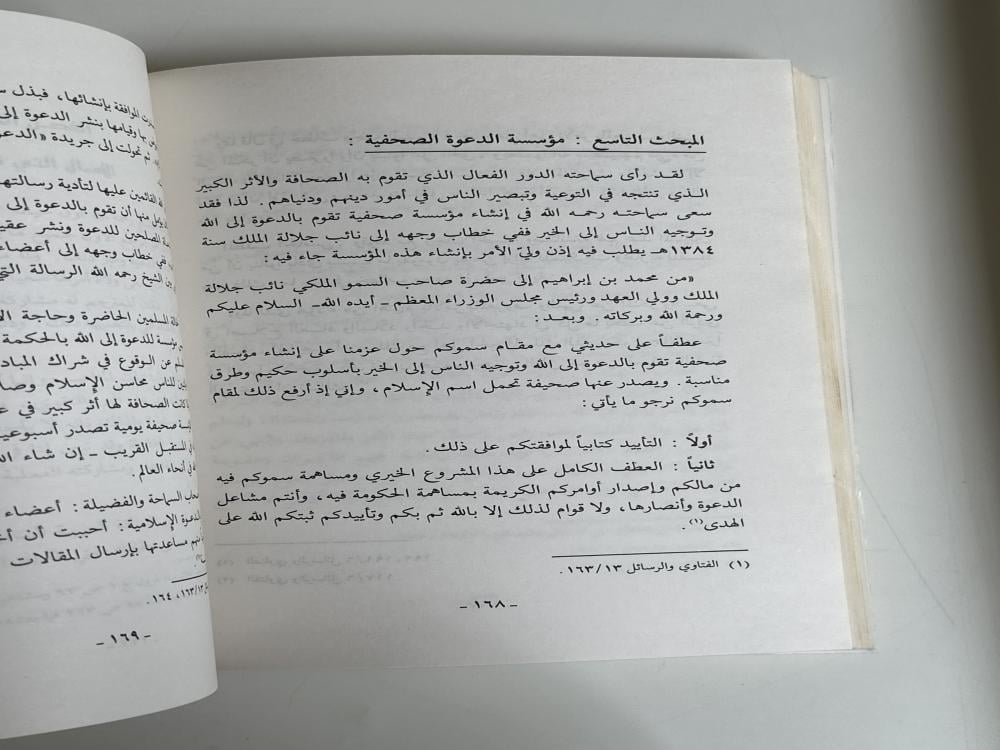 المبحث التاسع : مؤسسة الدعوة الصحفية :
لقد رأى سماحته الدور الفعال الذي تقوم به الصحافة والأثر الكبير
الذي تنتجه في التوعية وتبصير الناس في أمور دينهم ودنياهم . لذا فقد
سعى سماحته رحمه الله في إنشاء مؤسسة صحفية تقوم بالدعوة إلى الله
وتوجيه الناس إلى الخير ففي خطاب وجهه إلى نائب جلالة الملك سنة
١٣٨٤هـ يطلب فيه إذن وليّ الأمر بإنشاء هذه المؤسسة جاء فيه :
«من محمد بن إبراهيم إلى حضرة صاحب السمو الملكي نائب جلالة
الملك وولي العهد ورئيس مجلس الوزراء المعظم – أيده الله– السلام عليكم
ورحمة الله وبركاته . وبعد :
عطفاً على حديثي مع مقام سموكم حول عزمنا على إنشاء مؤسسة
صحفية تقوم بالدعوة إلى الله وتوجيه الناس إلى الخير بأسلوب حكيم وطرق
مناسبة . ويصدر عنها صحيفة تحمل اسم الإسلام ، وإني إذ أرفع ذلك لمقام
سموكم نرجو ما يأتي :
أولاً : التأييد كتابياً لموافقتكم على ذلك .
ثانياً : العطف الكامل على هذا المشروع الخيري ومساهمة سموكم فيه
من مالكم وإصدار أوامركم الكريمة بمساهمة الحكومة فيه ، وأنتم مشاعل
الدعوة وأنصارها ، ولا قوام لذلك إلا بالله ثم بكم وتأييدكم ثبتكم الله على
الهدى(١) .
(١) الفتاوي والرسائل ١٦٣/١٣ .
– ١٦٨ –
الموافقة بإنشائها ، فبذل
بها وقيامها بنشر الدعوة إلى
ثم تحولت إلى جريدة «الدعو
القائمين عليها لتأدية رسالتها
منها أن تقوم بالدعوة إلى
المصلحين للدعوة ونشر
ففي خطاب وجهه إلى أعضاء
الشيخ رحمه الله الرسالة التي
المسلمين الحاضرة وحاجة
للدعوة إلى الله بالحكمة
عن الوقوع في شراك
للناس محاسن الإسلام
كانت الصحافة لها أثر كبير في
صحيفة يومية تصدر
المستقبل القريب – إن شاء
في أنحاء العالم .
السماحة والفضيلة : أعضاء
الدعوة الإسلامية : أحببت أن
مساعدتها بإرسال المقالات
١٦٣/١٣ ، ١٦٤ .
– ١٦٩ –